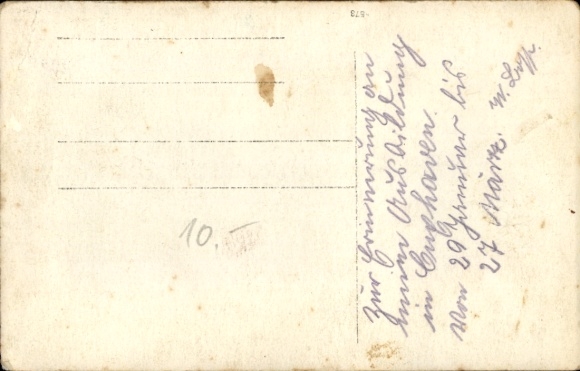 Zur Erinnerung an
meine Ausbildung
in Cuxhaven.
Von 29 Januar bis
27 März.
10.-